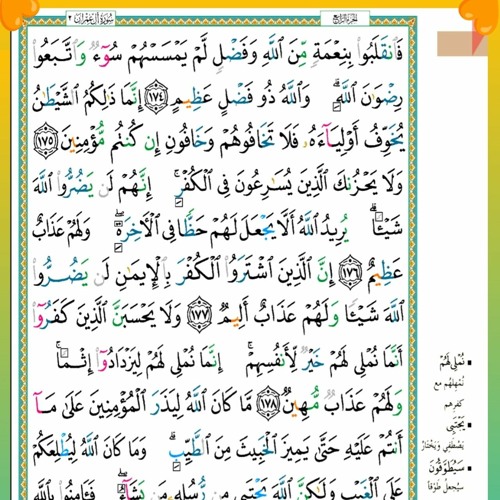 سُورَةُ آلِ عِمْرَانَ ٣
الجزء الرابع
فَٱنقَلَبُوا۟ بِنِعْمَةٍ مِّنَ ٱللَّهِ وَفَضْلٍ لَّمْ يَمْسَسْهُمْ سُوٓءٌ وَٱتَّبَعُوا۟
رِضْوَٰنَ ٱللَّهِ ۗ وَٱللَّهُ ذُو فَضْلٍ عَظِيمٍ ١٧٤ إِنَّمَا ذَٰلِكُمُ ٱلشَّيْطَٰنُ
يُخَوِّفُ أَوْلِيَآءَهُۥ فَلَا تَخَافُوهُمْ وَخَافُونِ إِن كُنتُم مُّؤْمِنِينَ ١٧٥
وَلَا يَحْزُنكَ ٱلَّذِينَ يُسَٰرِعُونَ فِى ٱلْكُفْرِ ۚ إِنَّهُمْ لَن يَضُرُّوا۟ ٱللَّهَ
شَيْـًٔا ۗ يُرِيدُ ٱللَّهُ أَلَّا يَجْعَلَ لَهُمْ حَظًّا فِى ٱلْـَٔاخِرَةِ ۖ وَلَهُمْ عَذَابٌ
عَظِيمٌ ١٧٦ إِنَّ ٱلَّذِينَ ٱشْتَرَوُا۟ ٱلْكُفْرَ بِٱلْإِيمَٰنِ لَن يَضُرُّوا۟
ٱللَّهَ شَيْـًٔا وَلَهُمْ عَذَابٌ أَلِيمٌ ١٧٧ وَلَا يَحْسَبَنَّ ٱلَّذِينَ كَفَرُوٓا۟
أَنَّمَا نُمْلِى لَهُمْ خَيْرٌ لِّأَنفُسِهِمْ ۚ إِنَّمَا نُمْلِى لَهُمْ لِيَزْدَادُوٓا۟ إِثْمًا ۚ
وَلَهُمْ عَذَابٌ مُّهِينٌ ١٧٨ مَّا كَانَ ٱللَّهُ لِيَذَرَ ٱلْمُؤْمِنِينَ عَلَىٰ مَآ
أَنتُمْ عَلَيْهِ حَتَّىٰ يَمِيزَ ٱلْخَبِيثَ مِنَ ٱلطَّيِّبِ ۗ وَمَا كَانَ ٱللَّهُ لِيُطْلِعَكُمْ
عَلَى ٱلْغَيْبِ وَلَٰكِنَّ ٱللَّهَ يَجْتَبِى مِن رُّسُلِهِۦ مَن يَشَآءُ ۖ فَـَٔامِنُوا۟ بِٱللَّهِ
▪ نُمْلِي لَهُمْ
نُمْهِلُهُم مع
كفرهم
▪ يَجْتَبِي
يَصْطَفِي وَيَخْتَارُ
▪ سَيُطَوَّقُونَ
سيُجعلُ طَوْقاً